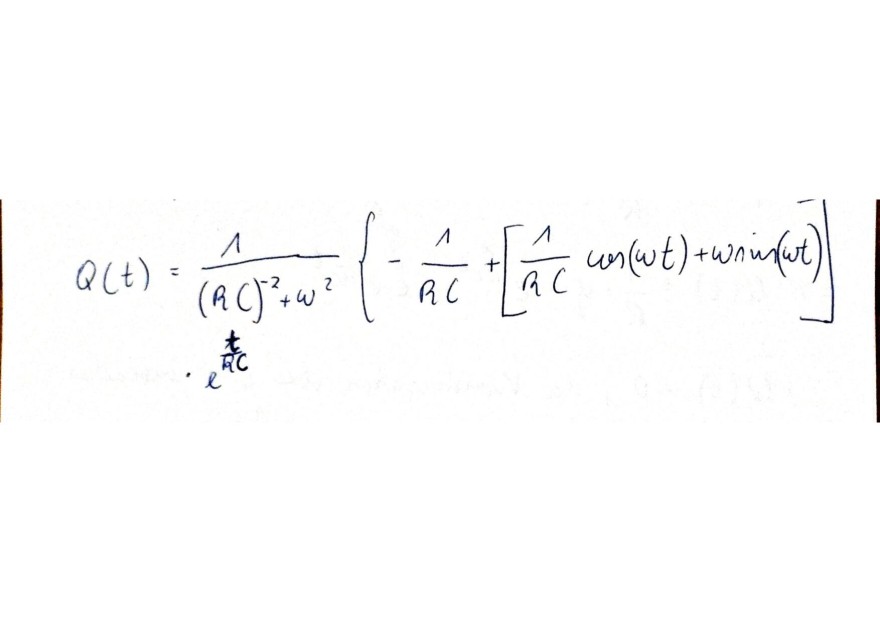 Q(t) = \frac{1}{(RC)^{-2}+ω^2} { - \frac{1}{RC} + [ \frac{1}{RC} cos(ωt) + ω sin(ωt) ]
· e^{\frac{t}{RC}}